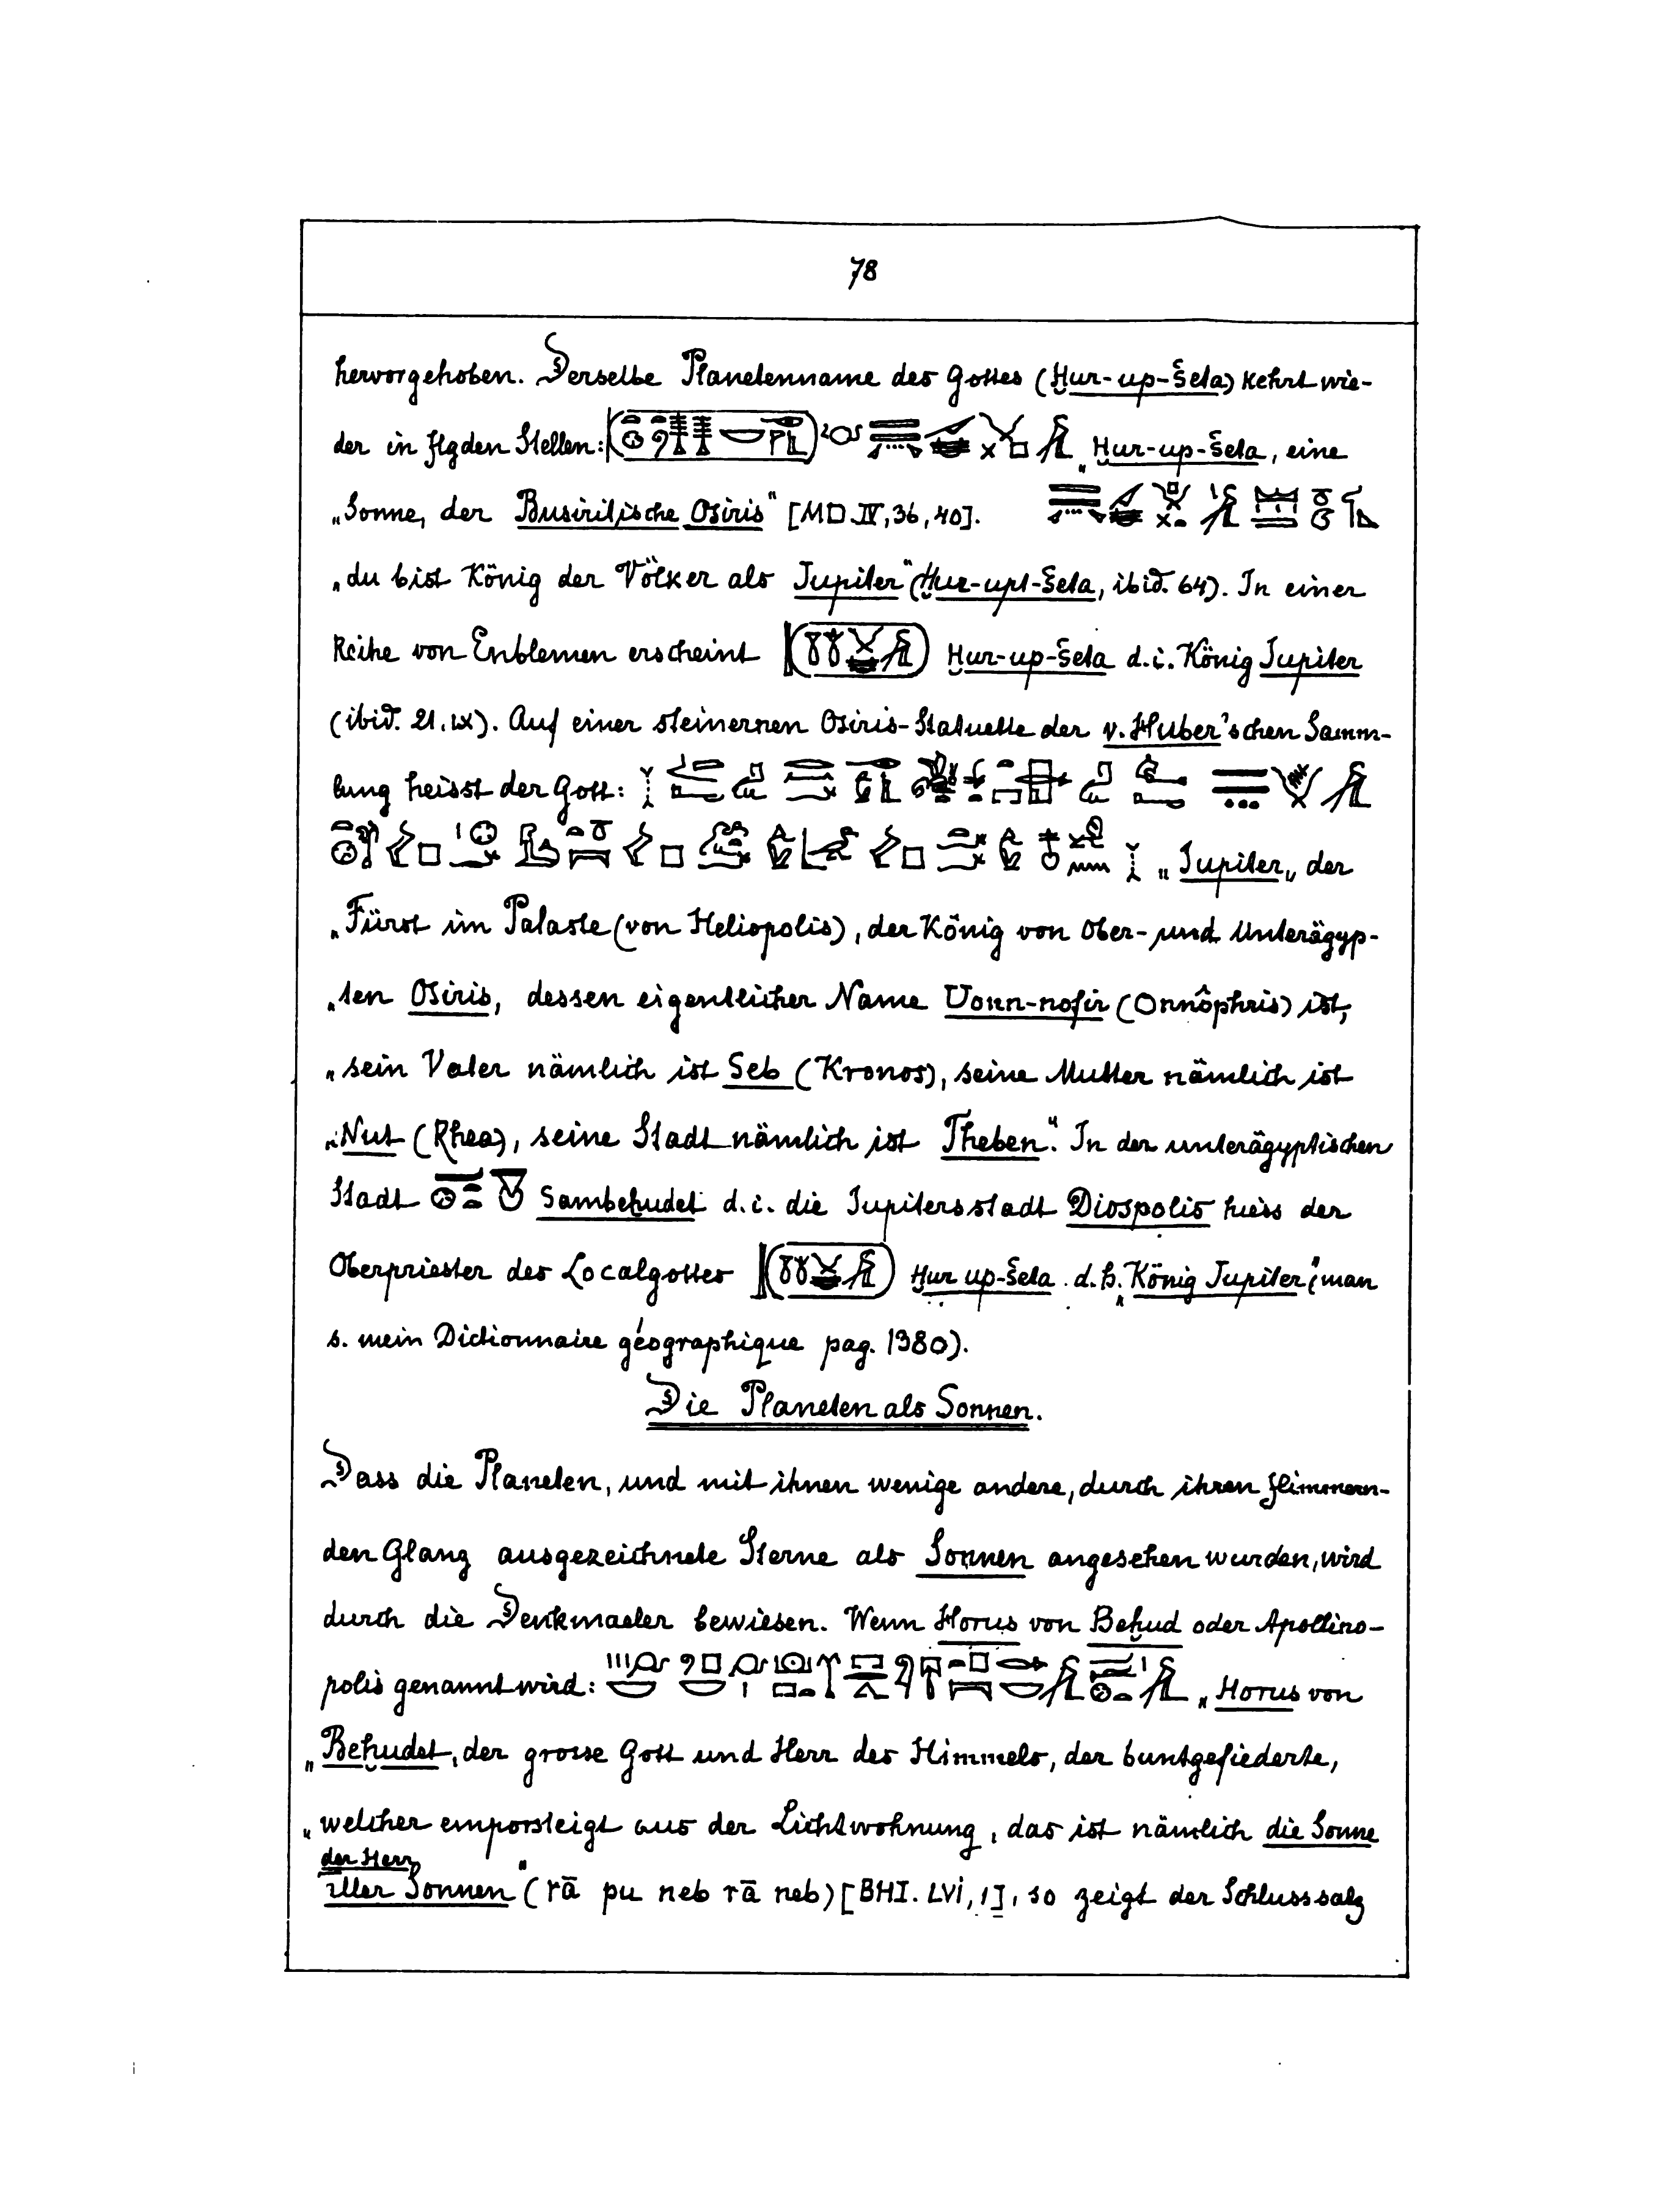 78
hervorgehoben. Derselbe Planetenname des Gottes (Ḥur-up-šeta) kehrt wie-
der in flgden Stellen: „Ḥur-up-šeta, eine
„Sonne, der Busiritische Osiris“ [MD. IV, 36, 40].
„du bist König der Völker als Jupiter“ (Ḥur-upt-šeta, ibid. 64). In einer
Reihe von Enblemen erscheint Ḥur-up-šeta d.i. König Jupiter
(ibid. 21. IX). Auf einer steinernen Osiris-Statuette der v. Huber'schen Samm-
lung heisst der Gott:
„Jupiter„ der
„Fürst im Palaste (von Heliopolis), der König von Ober- und Unterägyp-
„ten Osiris, dessen eigentlicher Name Uonn-nofir (Onnôphris) ist,
„sein Vater nämlich ist Seb (Kronos), seine Mutter nämlich ist
„Nut (Rhea), seine Stadt nämlich ist Theben“. In der unterägyptischen
Stadt Sambeḥudet d.i. die Jupitersstadt Diospolis hiess der
Oberpriester des Localgottes Ḥur up-šeta d.h. „König Jupiter“ (man
s. mein Dictionnaire géographique pag. 1380).
Die Planeten als Sonnen.
Dass die Planeten, und mit ihnen wenige andere, durch ihren flimmern-
den Glanz ausgezeichnete Sterne als Sonnen angesehen wurden, wird
durch die Denkmaeler bewiesen. Wenn Horus von Beḥud oder Apollino-
polis genannt wird: „Horus von
„Beḥudet, der grosse Gott und Herr des Himmels, der buntgefiederte,
„welcher emporsteigt aus der Lichtwohnung, das ist nämlich die Sonne
der Herr
aller Sonnen“ (rā pu neb rā neb) [BHI. LVI, 1], so zeigt der Schlusssatz